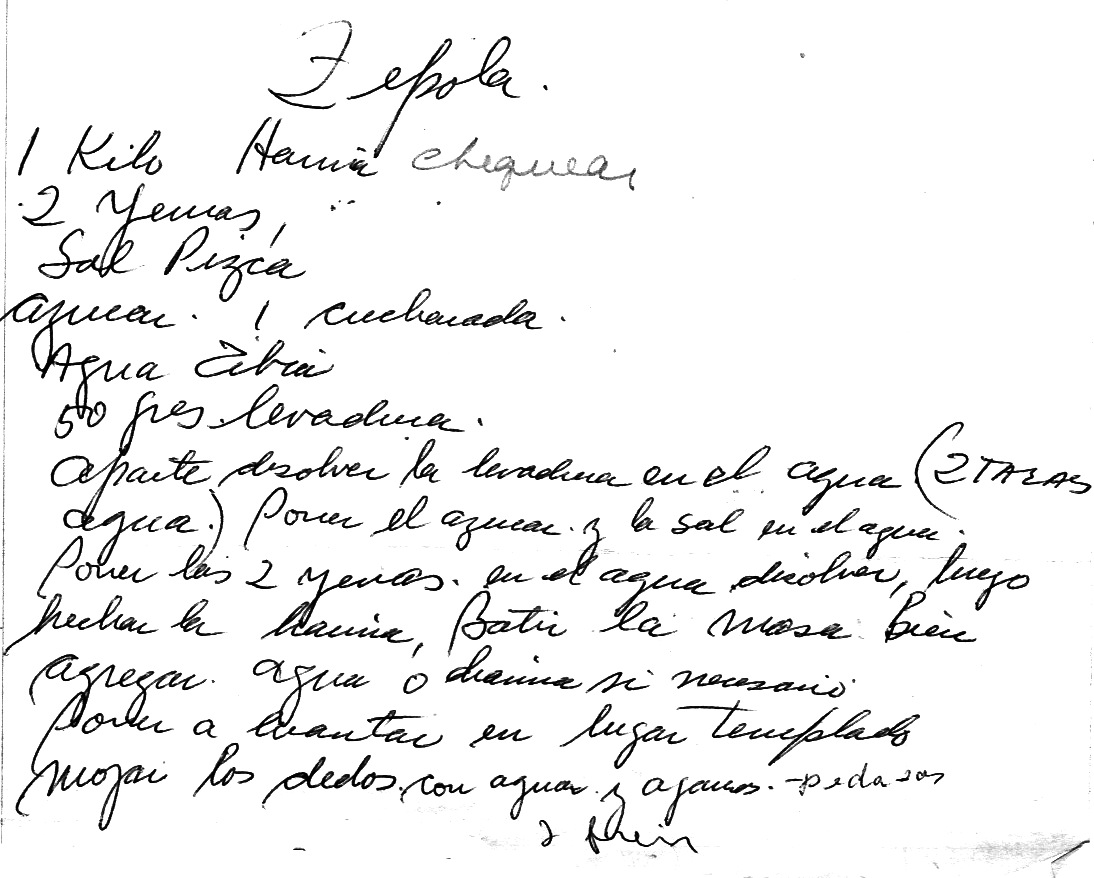 Zepola.
1 Kilo Harina chequear
2 Yemas,
Sal Pizca
azucar. 1 cucharada.
Agua tibia
50 grs. levadura.
aparte disolver la levadura en el agua (2 TAZAS
agua.) Poner el azucar y la sal en el agua.
Poner las 2 yemas. en el agua disolver, luego
hechar la harina, Batir la masa bien
agregar. agua ó harina si necesario
Poner a levantar en lugar templado
mojar los dedos con agua y agamos - pedasos
y freir